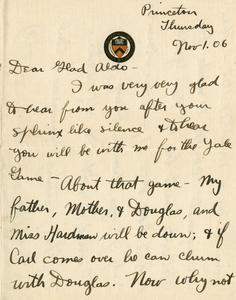 Princeton
Thursday
Nov 1. 06
Dear Glad Aldo -
I was very very glad
to hear from you after your
sphinx like silence & to hear
you will be with me for the Yale
Game - About that game - My
father, Mother, & Douglas, and
Miss Hardman will be down; & if
Carl comes over he can chum
with Douglas. Now why not